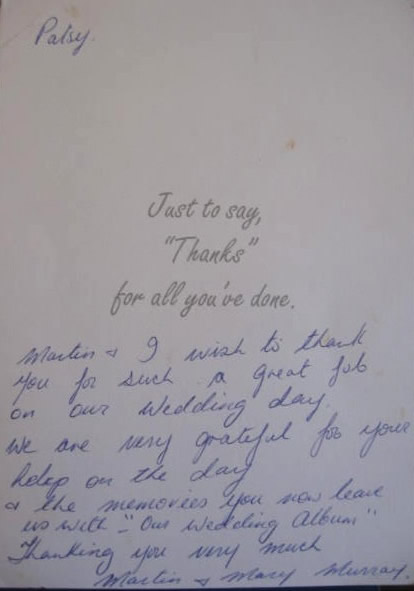 Patsy.
Just to say,
"Thanks"
for all you've done.
Martin & I wish to thank
you for such a great job
on our wedding day.
we are very grateful for your
help on the day
& the memories you now leave
us with - "Our Wedding Album"
Thanking you very much
Martin & Mary Murray.